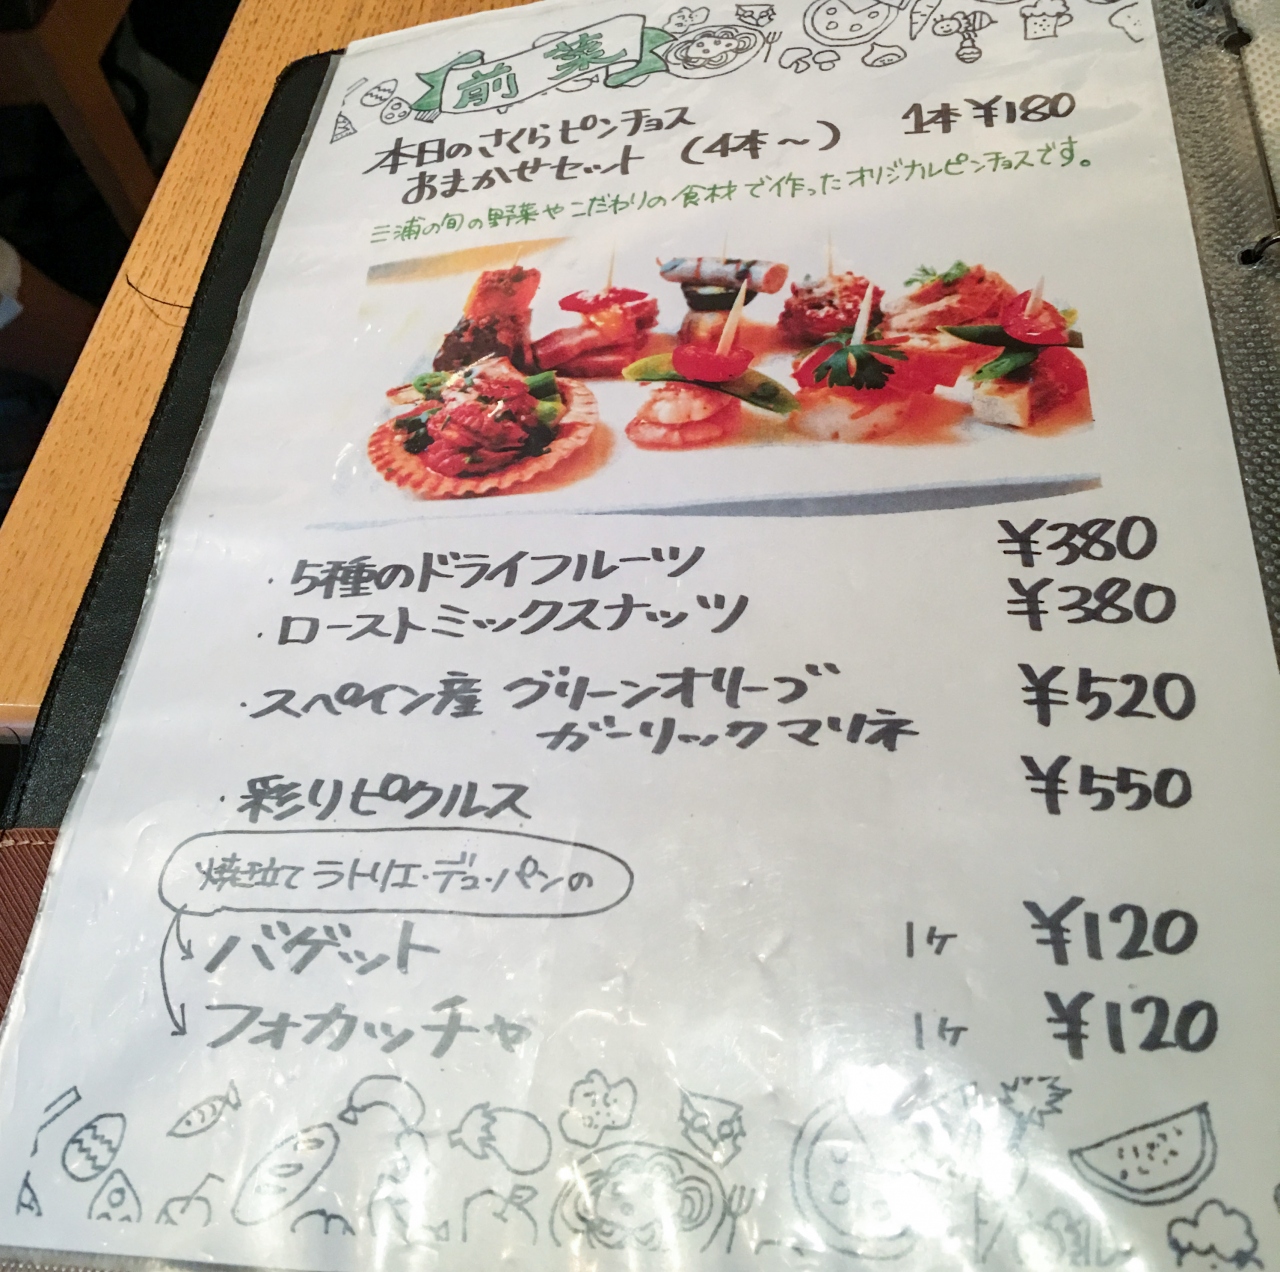 前菜
本日のさくらピンチョス
おまかせセット (4本〜) 1本 ¥180
三浦の旬の野菜やこだわりの食材で作ったオリジナルピンチョスです。
・5種のドライフルーツ ¥380
・ローストミックスナッツ ¥380
・スペイン産 グリーンオリーブ ¥520
ガーリックマリネ
・彩りピクルス ¥550
焼立て ラトリエ・デュ・パンの
バゲット 1ケ ¥120
フォカッチャ 1ケ ¥120